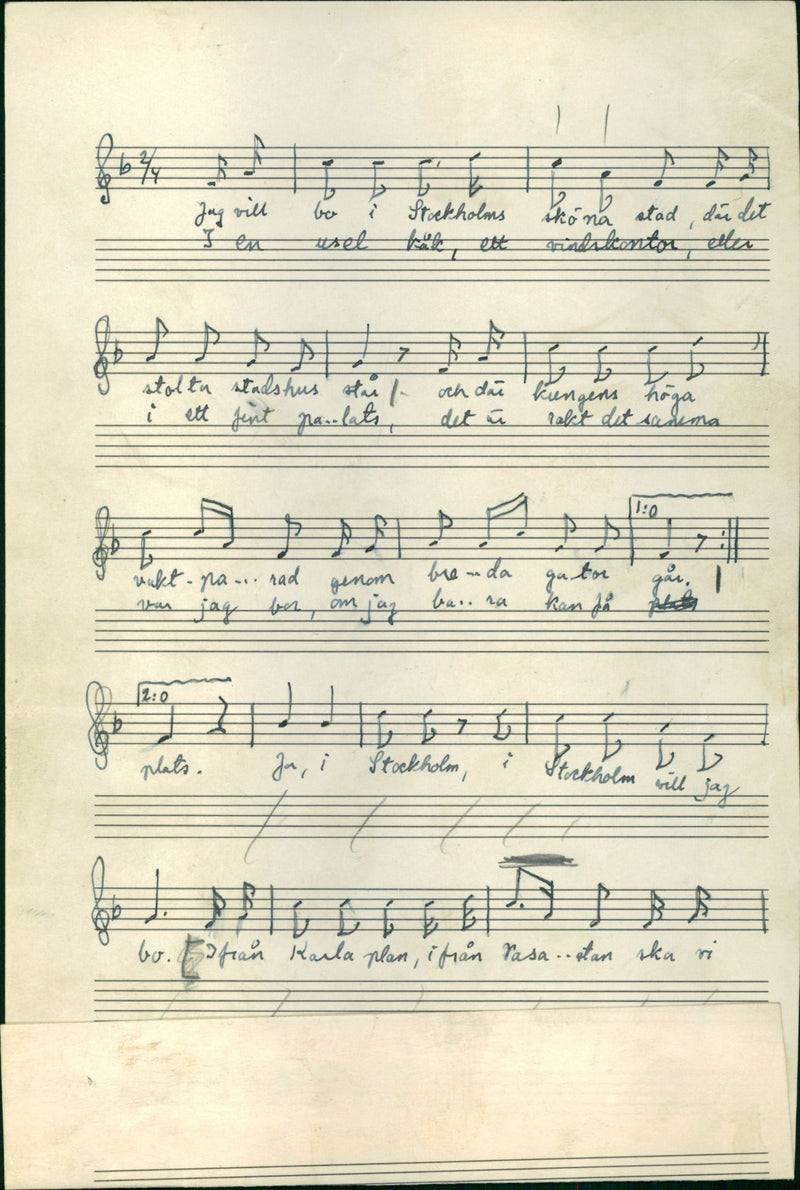 2/4
Jag vill bo i Stockholms sköna stad, där det
I en usel kåk, ett vindskontor, eller
stolta stadshus står och där kungens höga
i ett fint pa--lats, det är rakt det samma
1:o
vakt-pa--rad genom bre--da ga-tor går.
var jag bor, om jag ba..ra kan få plats
2:o
plats. Ja, i Stockholm, i Stockholm vill jag
bo. Ifrån Karla plan, ifrån Vasa--stan ska vi